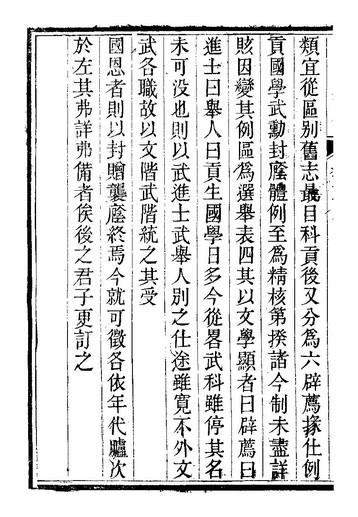 類宜從區别舊志最目科貢後又分爲六辟薦掾仕例
貢國學武勳封廕體例至爲精核第揆諸今制未盡詳
賅因變其例區爲選舉表四其以文學顯者曰辟薦曰
進士曰舉人曰貢生國學日多今從畧武科雖停其名
未可没也則以武進士武舉人别之仕途雖寬不外文
武各職故以文階武階統之其受
國恩者則以封贈襲廕終焉今就可徵各依年代臚次
於左其弗詳弗備者俟後之君子更訂之